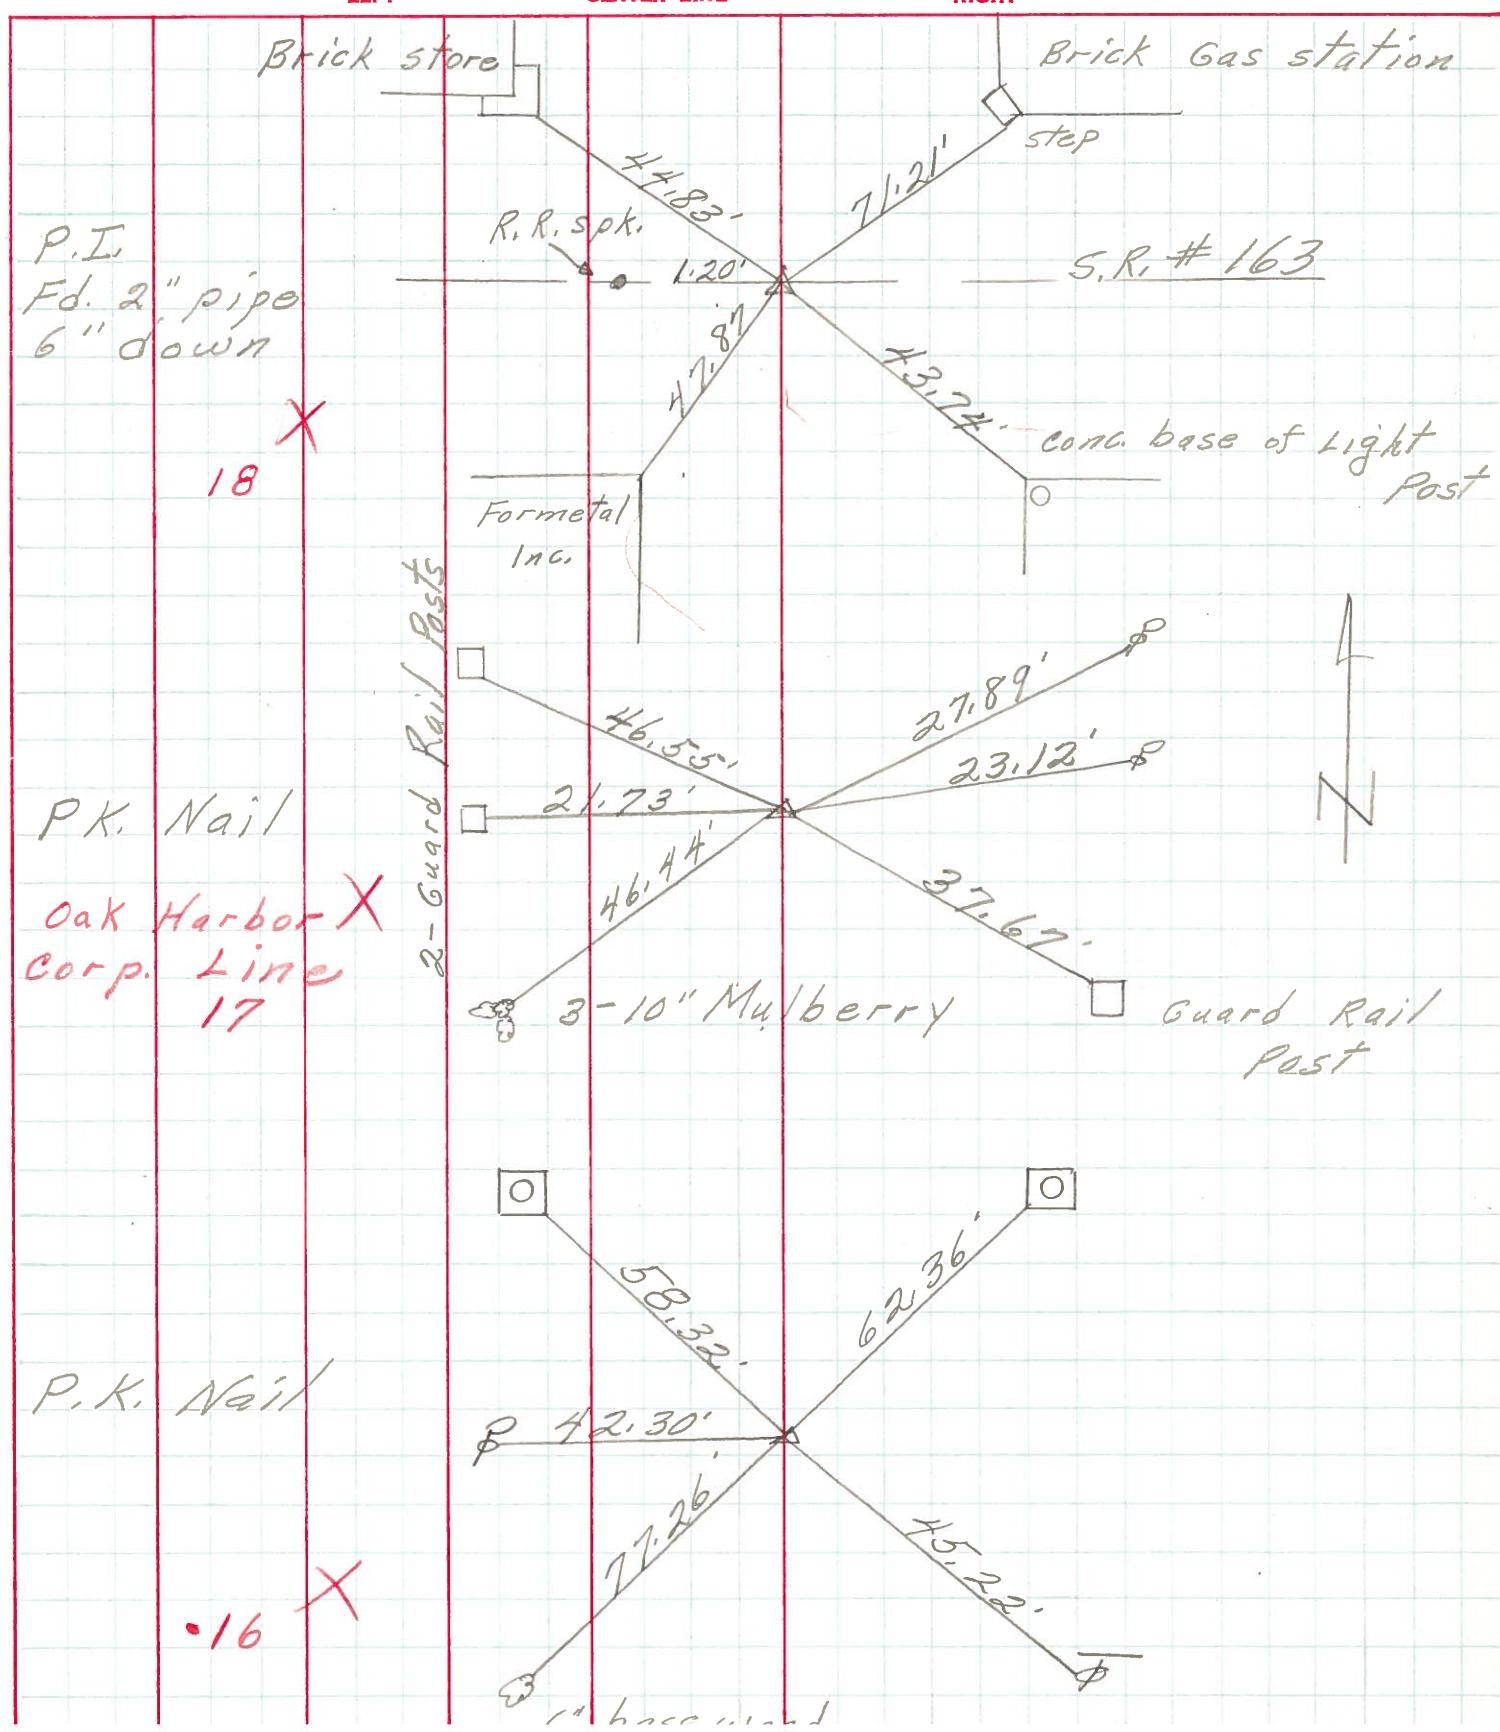 Brick store
Brick Gas station
step
44.83'
71.21'
R.R. spk.
1.20'
S.R. # 163
P.I.
Fd. 2" pipe
6" down
47.87
43.74'
18
conc. base of Light
Post
Formetal
Inc.
2-Guard Rail Posts
46.55'
27.89'
23.12'
21.73'
P.K. Nail
N
46.44'
37.67'
Oak Harbor
Corp. Line
17
3-10" Mulberry
Guard Rail
Post
58.32'
62.36'
P.K. Nail
42.30'
77.26'
45.22'
.16